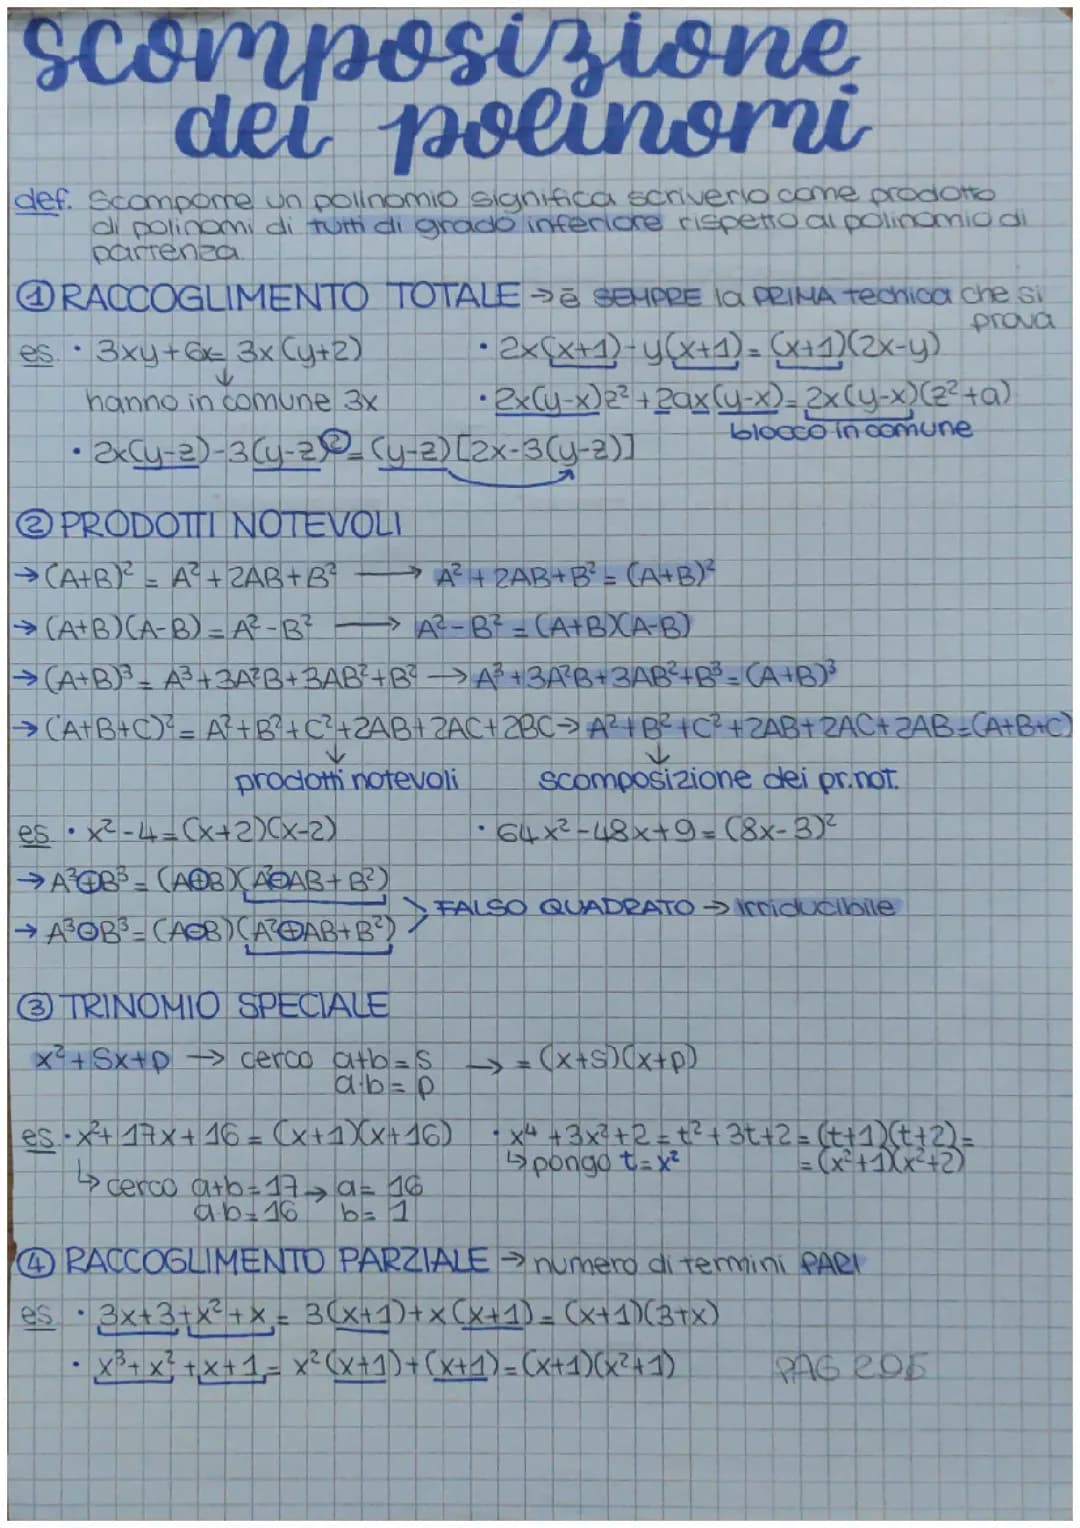 scomposizione
dei polinomi
def. Scomporre un polinomio significa scriverlo come prodotto
di polinomi di tutti di grado inferiore rispetto al polinomio di
partenza
① RACCOGLIMENTO TOTALE → è SEMPRE la PRIMA tecnica che si
prova
es. · 3xy+6x= 3x(y+2) · 2x(x+1)-y(x+1)= (x+1)(2x-y)
↓
hanno in comune 3x · 2x(y-x)z²+2ax(y-x)= 2x(y-x)(z²+a)
blocco in comune
· 2x(y-z)-3(y-z)²= (y-z)[2x-3(y-z)]
② PRODOTTI NOTEVOLI
→ (A+B)² = A²+2AB+B² → A²+2AB+B²= (A+B)²
→ (A+B)(A-B) = A²-B² → A²-B² = (A+B)(A-B)
→ (A+B)³= A³+3A²B+3AB²+B² → A³+3A²B+3AB²+B³= (A+B)³
→ (A+B+C)²= A²+B²+C²+2AB+2AC+2BC → A²+B²+C²+2AB+2AC+2AB=(A+B+C)
↓ ↓
prodotti notevoli scomposizione dei pr.not.
es · x²-4=(x+2)(x-2) · 64x²-48x+9= (8x-3)²
→ A³⊕B³= (A⊕B)(A²⊖AB+B²)
> FALSO QUADRATO → irriducibile
→ A³⊖B³= (A⊖B)(A²⊕AB+B²)
③ TRINOMIO SPECIALE
x²+Sx+p → cerco a+b=s → = (x+s)(x+p)
a·b= p
es. · x²+17x+16= (x+1)(x+16) · x⁴+3x²+2= t²+3t+2= (t+1)(t+2)=
↳ pongo t=x² = (x²+1)(x²+2)
↳ cerco a+b=17 → a= 16
a·b=16 b= 1
④ RACCOGLIMENTO PARZIALE → numero di termini PARI
es · 3x+3+x²+x= 3(x+1)+x(x+1)= (x+1)(3+x)
· x³+x²+x+1= x²(x+1)+(x+1)=(x+1)(x²+1) PAG 205